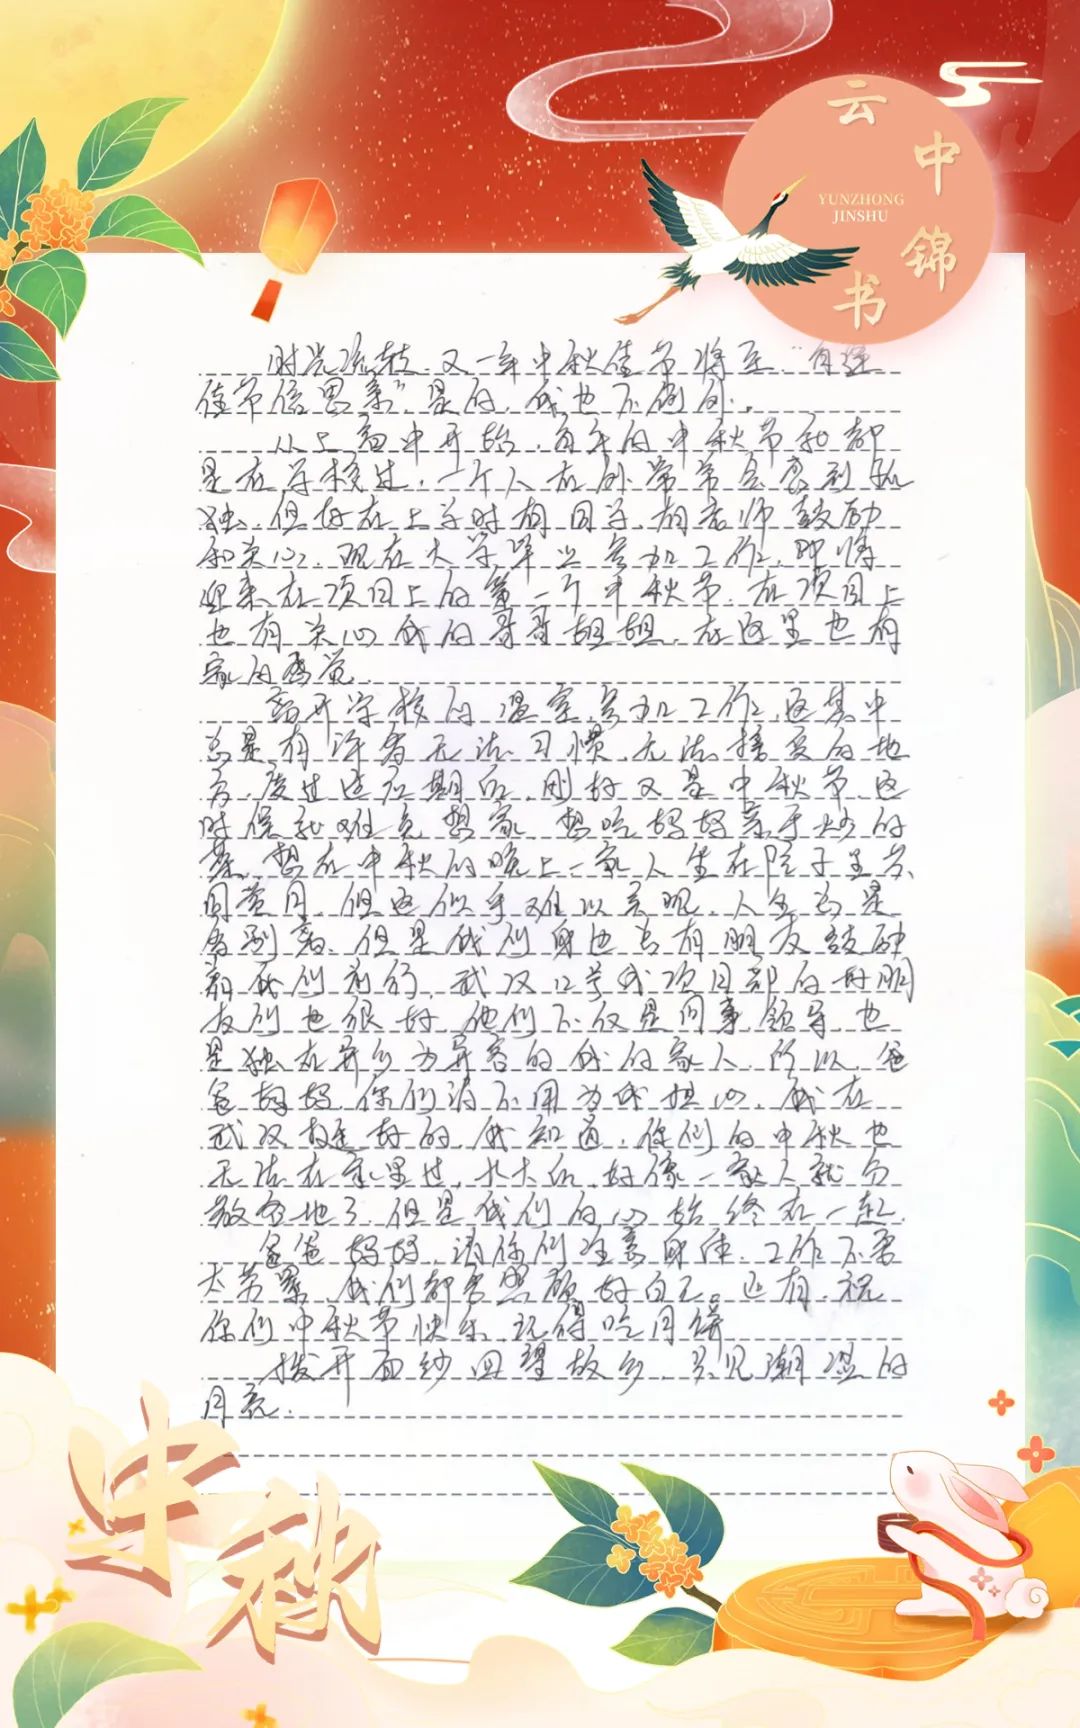 云中锦书
YUNZHONG
JINSHU
时光流转，又一年中秋佳节将至，“每逢
佳节倍思亲”是的，我也不例外。
从上高中开始，每年的中秋节都
是在学校过，一个人在外常常会感到孤
独，但好在上学时有同学，有老师鼓励
和关心，现在大学毕业参加工作，即将
迎来在项目上的第一个中秋节，在项目上
也有关心我的哥哥姐姐，在这里也有
家的感觉。
离开学校的温室，参加工作，这其中
总是有许多无法习惯，无法接受的地
方，度过适应期后，刚好又是中秋节，这
时候就难免想家，想吃妈妈亲手炒的
菜，想在中秋的晚上一家人坐在院子里共
同赏月，但这似乎难以实现，人生总是
有别离，但是我们身边总有朋友鼓励
着我们前行，武汉12号线项目部的好朋
友们也很好，他们不仅是同事领导，也
是独在异乡为异客的我的家人，所以，爸
爸妈妈，你们请不用为我担心，我在
武汉挺好的，我知道，你们的中秋也
无法在家里过，长大后，好像一家人就分
散各地了，但是我们的心始终在一起。
爸爸妈妈，请你们注意身体，工作不要
太劳累，我们都要照顾好自己。还有，祝
你们中秋节快乐，记得吃月饼
拨开面纱回望故乡，只见潮湿的
月亮。
中秋